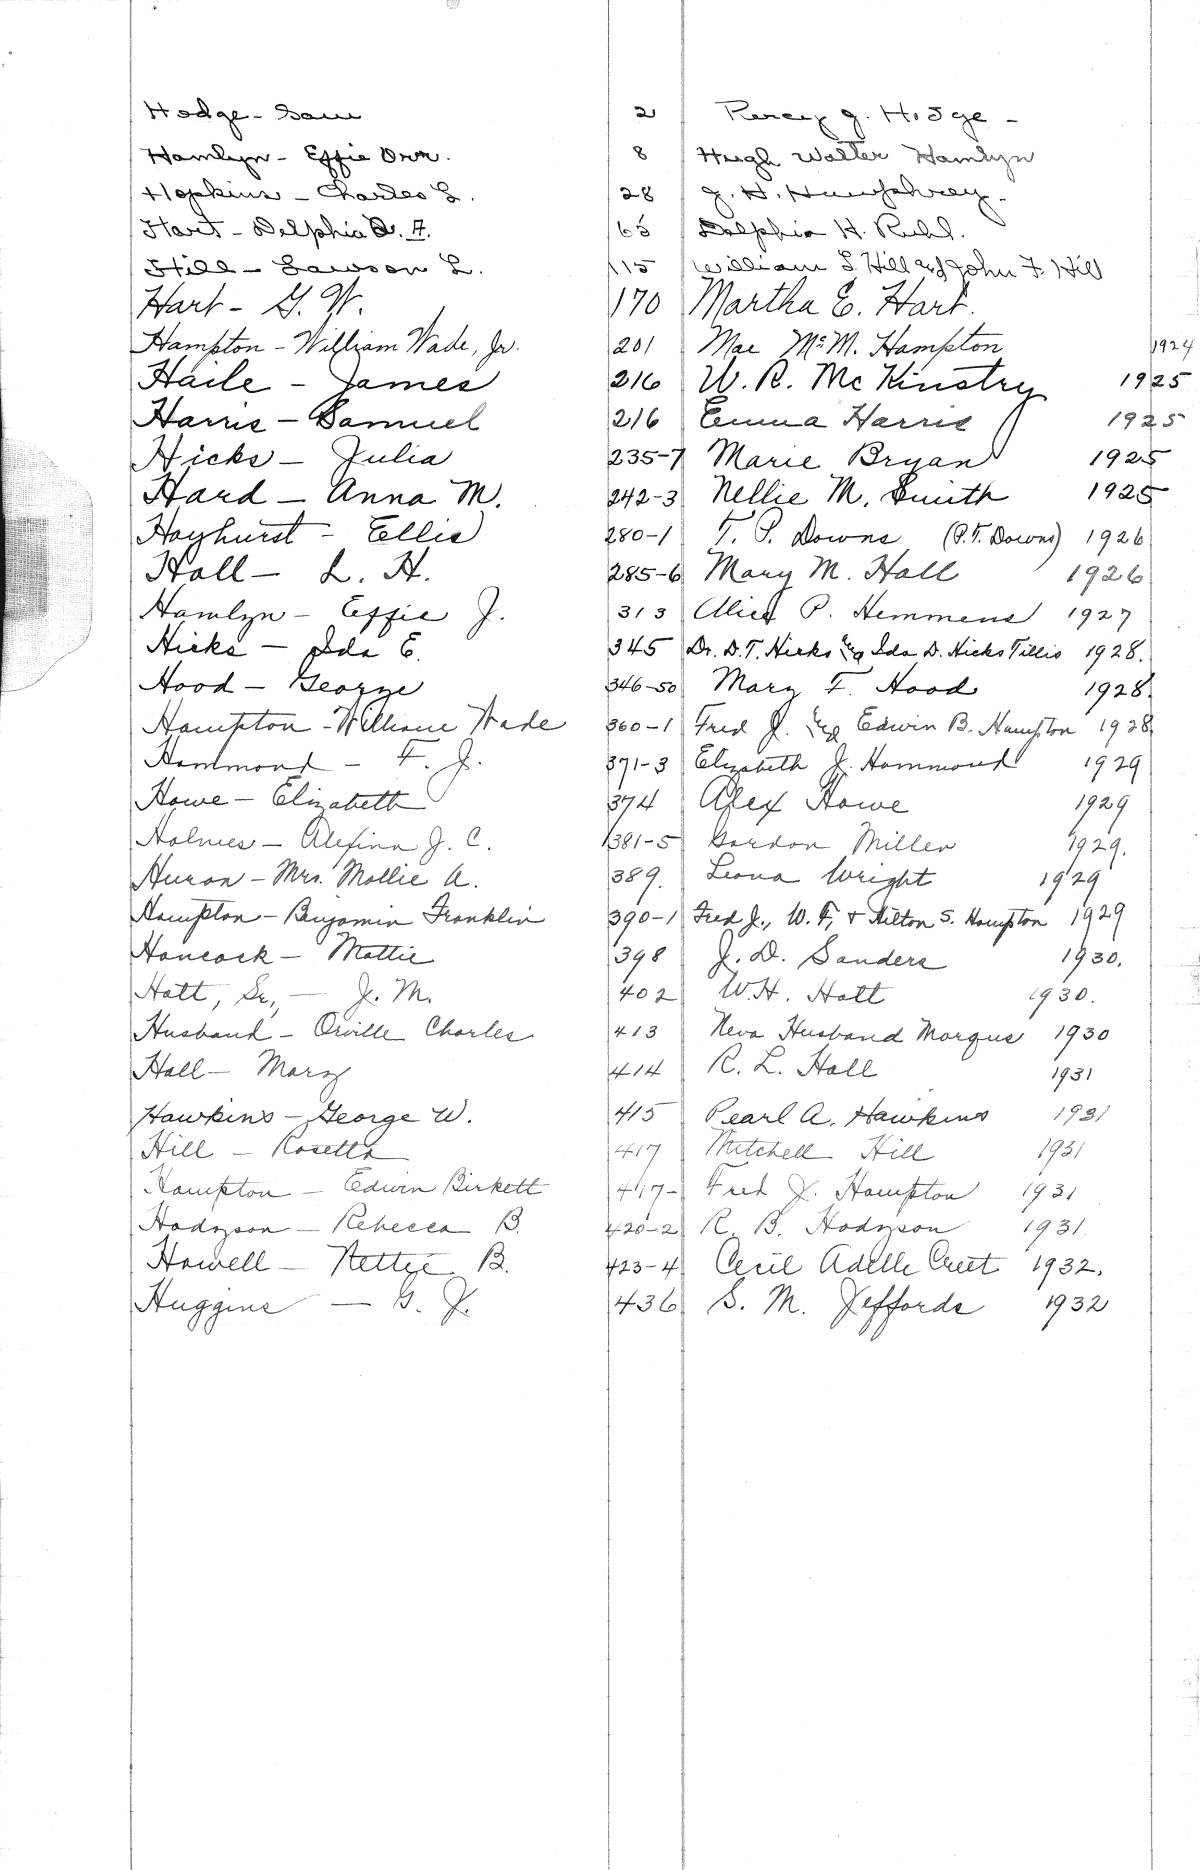 Hodge - Sam 2 Percy J. Hodge -
Hamlyn - Effie Orr. 8 Hugh Walter Hamlyn
Hopkins - Charles L. 28 J. H. Humphrey.
Hart - Delphia A. F. 65 Delphia H. Ruhl.
Hill - Lawson L. 115 William L Hill and John F. Hill
Hart - G. W. 170 Martha E. Hart.
Hampton - William Wade, Jr. 201 Mae McM. Hampton 1924
Haile - James 216 W. R. McKinstry 1925
Harris - Samuel 216 Emma Harris 1925
Hicks - Julia 235-7 Marie Bryan 1925
Hard - Anna M. 242-3 Nellie M. Smith 1925
Hayhurst - Ellis 280-1 T. P. Downs (P.T. Downs) 1926
Hall - L. H. 285-6 Mary M. Hall 1926
Hamlyn - Effie J. 313 Alice P. Hemmens 1927
Hicks - Ida E. 345 Dr. D.T. Hicks and Ida D. Hicks Tillis 1928.
Hood - George 346-50 Mary F. Hood 1928.
Hampton - William Wade 360-1 Fred J. and Edwin B. Hampton 1928
Hammond - F. J. 371-3 Elizabeth J. Hammond 1929
Howe - Elizabeth 374 Alex Howe 1929
Holmes - Alefina J. C. 381-5 Gordon Miller 1929.
Huron - Mrs. Mollie A. 389. Leona Wright 1929
Hampton - Benjamin Franklin 390-1 Fred J., W. F., + Hilton S. Hampton 1929
Hancock - Mattie 398 J. D. Sanders 1930.
Hatt, Sr., - J. M. 402 W.H. Hatt 1930.
Husband - Orville Charles 413 Neva Husband Marquis 1930
Hall - Mary 414 R. L. Hall 1931
Hawkins - George W. 415 Pearl A. Hawkins 1931
Hill - Rosetta 417 Mitchell Hill 1931
Hampton - Edwin Birkett 417- Fred J. Hampton 1931
Hodgson - Rebecca B. 420-2 R. B. Hodgson 1931
Howell - Nettie B. 423-4 Cecil Adelle Creet 1932.
Huggins - G. J. 436 S. M. Jeffords 1932